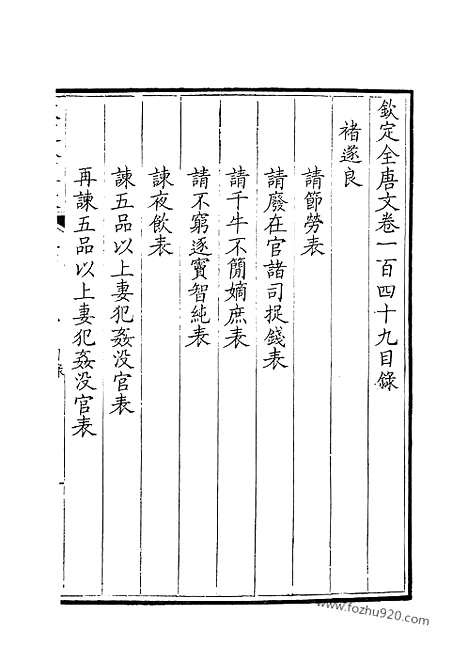 欽定全唐文卷一百四十九目錄
褚遂良
請節勞表
請廢在官諸司捉錢表
請千牛不簡嫡庶表
請不窮逐竇智純表
諫夜飲表
諫五品以上妻犯姦没官表
再諫五品以上妻犯姦没官表
www.fozhu920.com